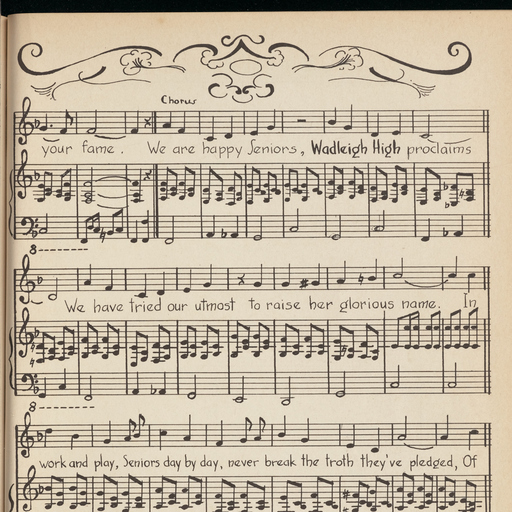 Chorus
your fame. We are happy Seniors, Wadleigh High proclaims
8
We have tried our utmost to raise her glorious name. In
8
work and play, Seniors day by day, never break the troth they've pledged, Of